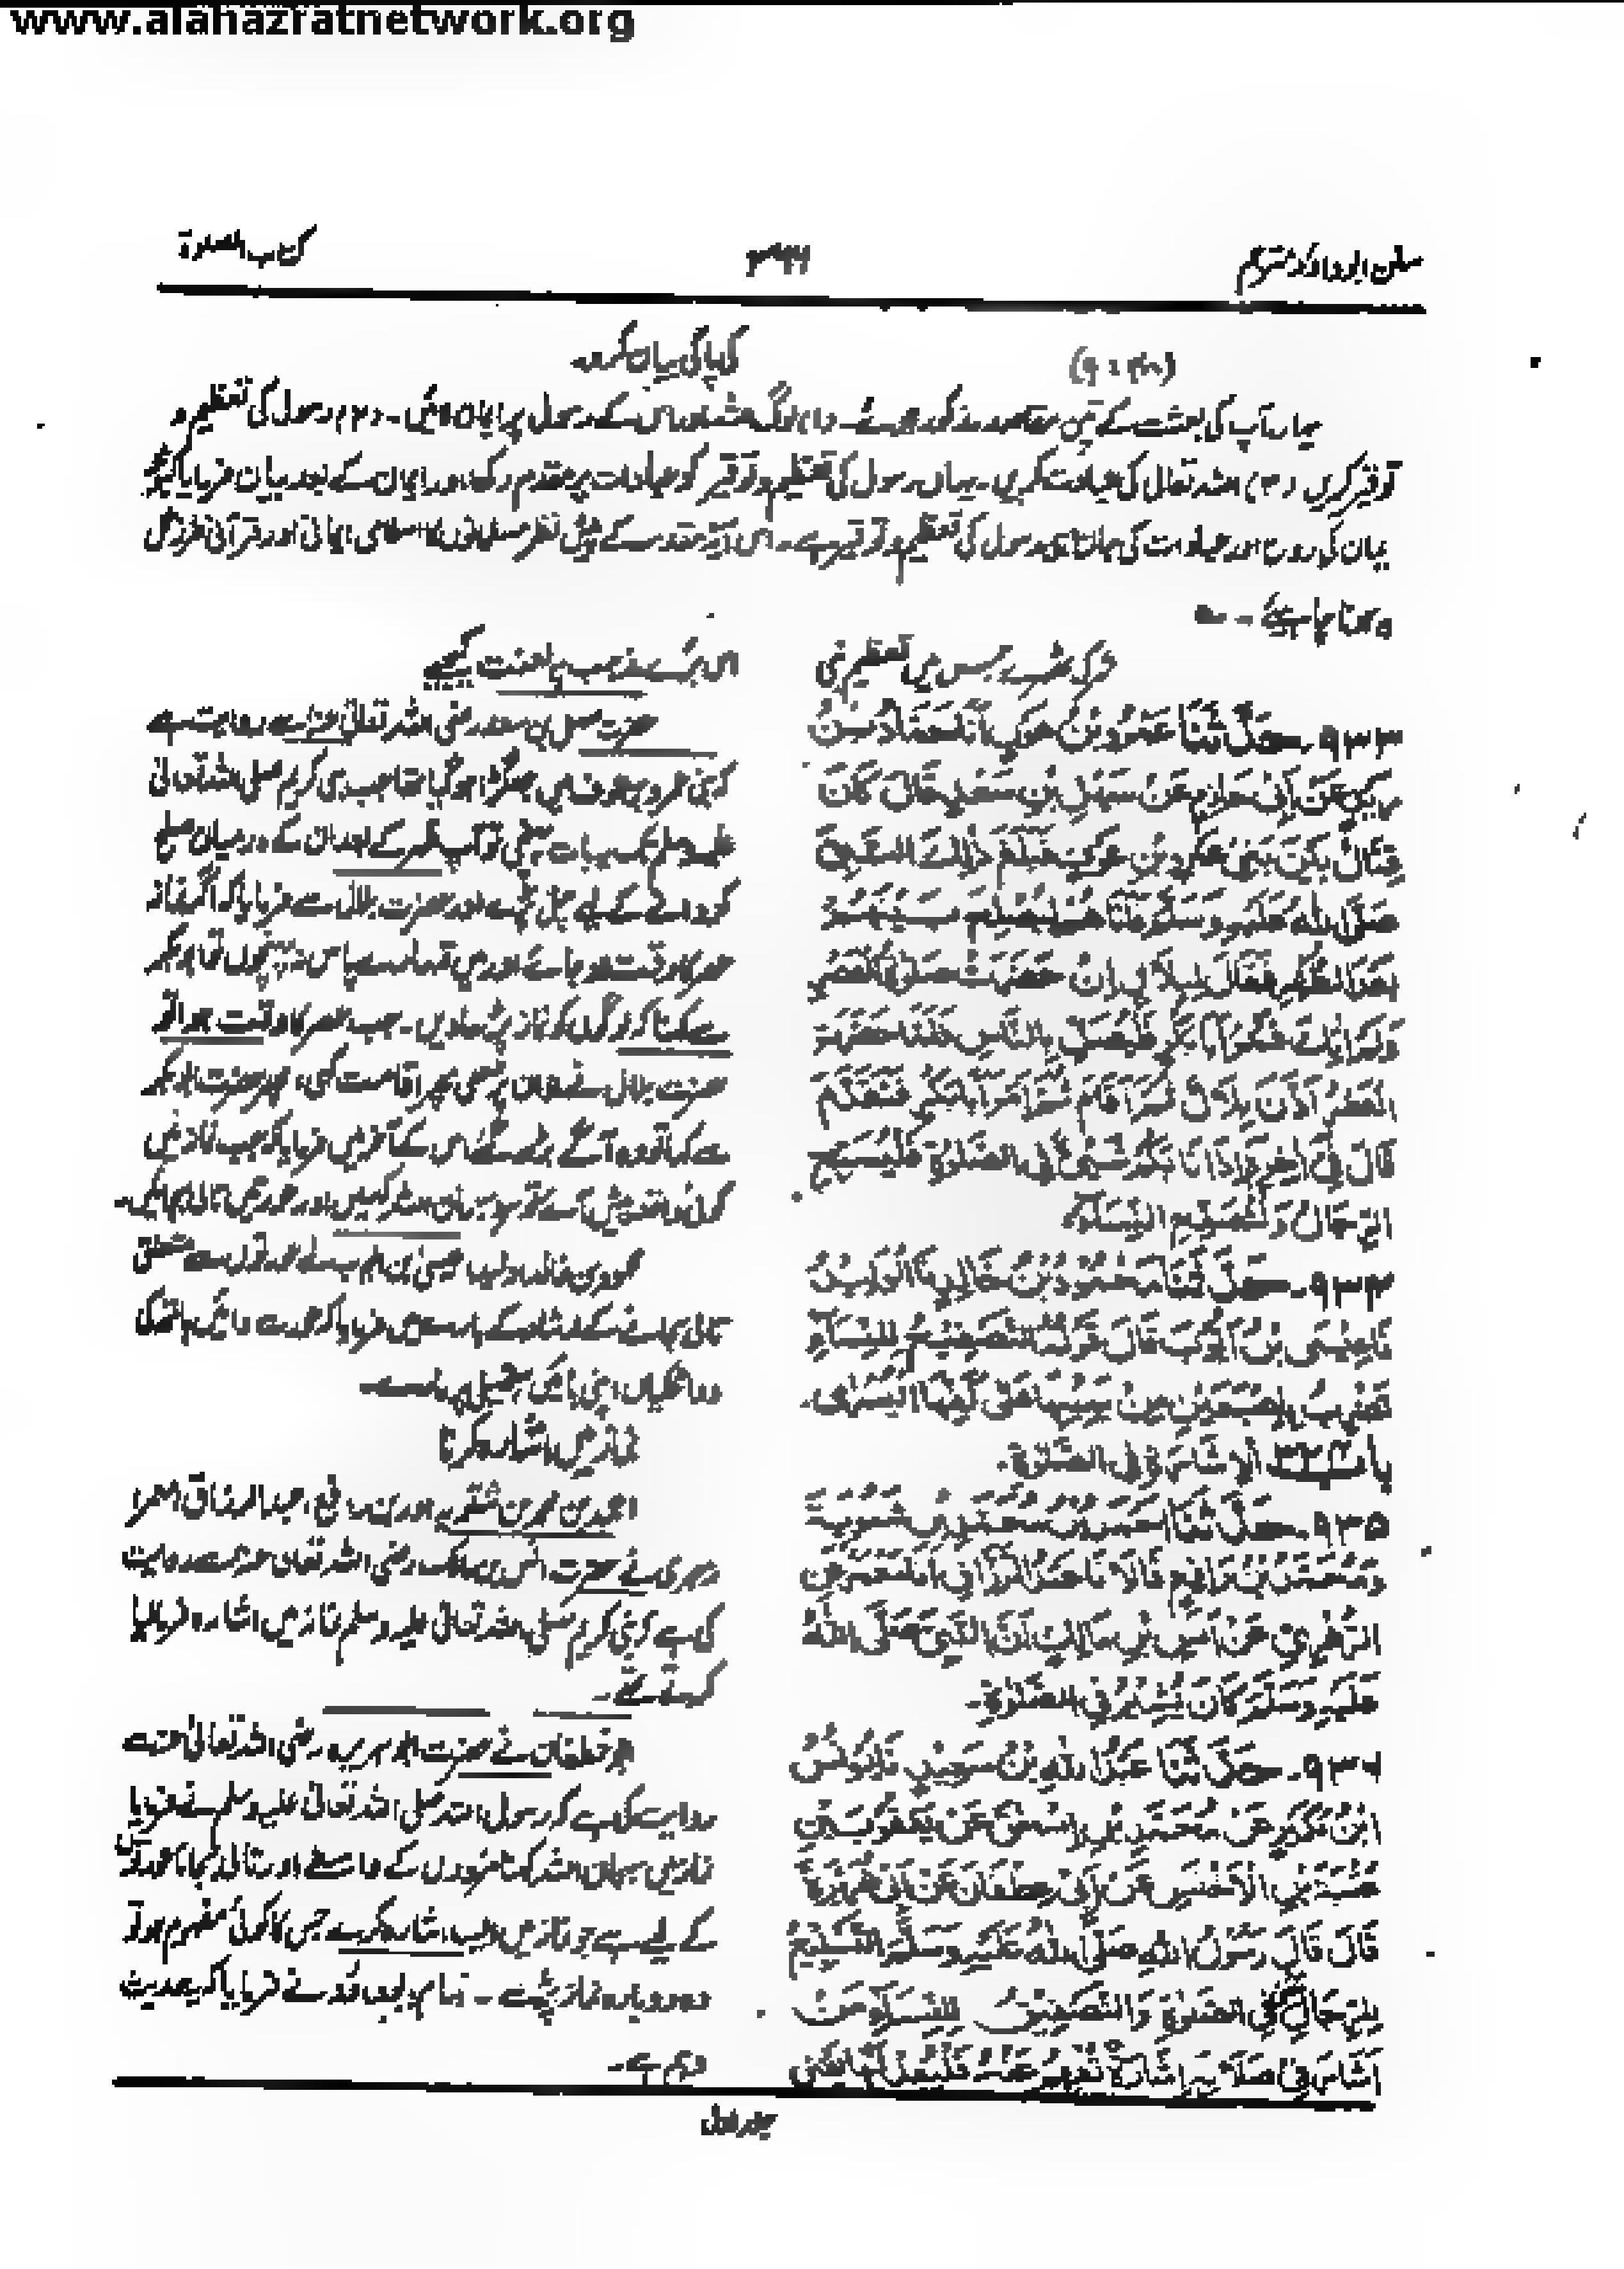 www.alahazratnetwork.org
سنن ابوداؤد مترجم
۳۶۶
کتاب الصلوٰۃ
(۹ : ۴۸)
کی پاکی بیان کرو۔
یہاں آپ کی بعثت کے تین مقاصد مذکور ہوئے۔ لوگ اللہ اور اس کے رسول پر ایمان لائیں۔ (۲) رسول کی تعظیم و
توقیر کریں (۳) اللہ تعالیٰ کی عبادت کریں۔ یہاں رسول کی تعظیم و توقیر کو عبادات پر مقدم رکھا اور ایمان کے بعد بیان فرمایا کیونکہ
ایمان کی روح اور عبادت کی جان تو رسول کی تعظیم و توقیر ہے۔ اس آیۂ مقدسہ کے پیش نظر مسلمانوں کا اسلامی، ایمانی اور قرآنی طرز عمل
ہونا چاہیئے۔
شرک ٹھہرے جس میں تعظیم نبی
اس برے مذہب پہ لعنت کیجیے
۹۳۳۔ حَدَّثَنَا عَمْرُو بْنُ عَوْنٍ أَنَا حَمَّادُ بْنُ
زَيْدٍ عَنْ أَبِي حَازِمٍ عَنْ سَهْلِ بْنِ سَعْدٍ قَالَ كَانَ
قِتَالٌ بَيْنَ بَنِي عَمْرِو بْنِ عَوْفٍ فَبَلَغَ ذٰلِكَ النَّبِيَّ
صَلَّى اللهُ عَلَيْهِ وَسَلَّمَ فَأَتَاهُمْ لِيُصْلِحَ بَيْنَهُمْ
بَعْدَ الظُّهْرِ فَقَالَ لِبِلَالٍ إِنْ حَضَرَتْ صَلٰوةُ الْعَصْرِ
وَلَمْ اٰتِكَ فَمُرْ أَبَا بَكْرٍ فَلْيُصَلِّ بِالنَّاسِ فَلَمَّا حَضَرَتِ
الْعَصْرُ أَذَّنَ بِلَالٌ ثُمَّ أَقَامَ ثُمَّ أَمَرَ أَبَا بَكْرٍ فَتَقَدَّمَ
قَالَ فِي اٰخِرِهٖ إِذَا نَابَكُمْ شَيْءٌ فِي الصَّلٰوةِ فَلْيُسَبِّحِ
الرِّجَالُ وَلْيُصَفِّحِ النِّسَاءُ۔
۹۳۴۔ حَدَّثَنَا مَحْمُودُ بْنُ خَالِدٍ نَا الْوَلِيدُ
نَا عِيسَى بْنُ أَيُّوبَ قَالَ قَوْلُهُ التَّصْفِيحُ لِلنِّسَاءِ
تَضْرِبُ بِإِصْبَعَيْنِ مِنْ يَمِينِهَا عَلٰى كَفِّهَا الْيُسْرٰى۔
بَابُ الْإِشَارَةِ فِي الصَّلٰوةِ۔
۹۳۵۔ حَدَّثَنَا أَحْمَدُ بْنُ مُحَمَّدِ بْنِ شَبُّوَيْهِ
وَمُحَمَّدُ بْنُ رَافِعٍ قَالَا نَا عَبْدُ الرَّزَّاقِ أَنَا مَعْمَرٌ عَنِ
الزُّهْرِيِّ عَنْ أَنَسِ بْنِ مَالِكٍ أَنَّ النَّبِيَّ صَلَّى اللهُ
عَلَيْهِ وَسَلَّمَ كَانَ يُشِيرُ فِي الصَّلٰوةِ۔
۹۳۶۔ حَدَّثَنَا عَبْدُ اللهِ بْنُ سَعِيدٍ نَا يُونُسُ
ابْنُ بُكَيْرٍ عَنْ مُحَمَّدِ بْنِ إِسْحٰقَ عَنْ يَعْقُوبَ بْنِ
عُتْبَةَ بْنِ الْأَخْنَسِ عَنْ أَبِي غَطَفَانَ عَنْ أَبِي هُرَيْرَةَ
قَالَ قَالَ رَسُولُ اللهِ صَلَّى اللهُ عَلَيْهِ وَسَلَّمَ التَّسْبِيحُ
لِلرِّجَالِ فِي الصَّلٰوةِ وَالتَّصْفِيقُ لِلنِّسَاءِ مَنْ
أَشَارَ فِي صَلَاتِهٖ إِشَارَةً تُفْهَمُ عَنْهُ فَلْيُعِدْ لَهَا يَعْنِي
حضرت سہل بن سعد رضی اللہ تعالیٰ عنہ سے روایت ہے
کہ بنی عمرو بن عوف میں جھگڑا ہو گیا تھا جب نبی کریم صلی اللہ تعالیٰ
علیہ وسلم تک یہ بات پہنچی تو آپ ظہر کے بعد ان کے درمیان صلح
کروانے کے لیے چل پڑے اور حضرت بلال سے فرمایا کہ اگر نماز
عصر کا وقت ہو جائے اور میں تمہارے پاس نہ پہنچوں تو ابوبکر
سے کہنا کہ لوگوں کو نماز پڑھا دیں۔ جب عصر کا وقت ہوا تو
حضرت بلال نے اذان پڑھی پھر اقامت کہی، پھر حضرت ابوبکر
سے کہا تو وہ آگے بڑھ گئے اس کے آخر میں فرمایا کہ جب نماز میں
کوئی واقعہ پیش آئے تو مرد سبحان اللہ کہیں اور عورتیں تالی بجائیں۔
محمود بن خالد، ولید، عیسیٰ بن ایوب نے عورتوں سے متعلق
تالی بجانے کے ارشاد کے بارے میں فرمایا کہ عورت دائیں ہاتھ کی
دو انگلیاں اپنی بائیں ہتھیلی پر مارے۔
نماز میں اشارہ کرنا
احمد بن محمد بن شبویہ اور بن رافع، عبدالرزاق، معمر،
زہری نے حضرت انس بن مالک رضی اللہ تعالیٰ عنہ سے روایت
کی ہے کہ نبی کریم صلی اللہ تعالیٰ علیہ وسلم نماز میں اشارہ فرما لیا
کرتے تھے۔
ابو غطفان نے حضرت ابوہریرہ رضی اللہ تعالیٰ عنہ سے
روایت کی ہے کہ رسول اللہ صلی اللہ تعالیٰ علیہ وسلم نے فرمایا
نماز میں سبحان اللہ کہنا مردوں کے واسطے اور تالی بجانا عورتوں
کے لیے ہے جو نماز میں ایسا اشارہ کرے جس کا کوئی مفہوم ہو تو
وہ دوبارہ نماز پڑھے۔ امام ابوداؤد نے فرمایا کہ یہ حدیث
وہم ہے۔
جلد اول